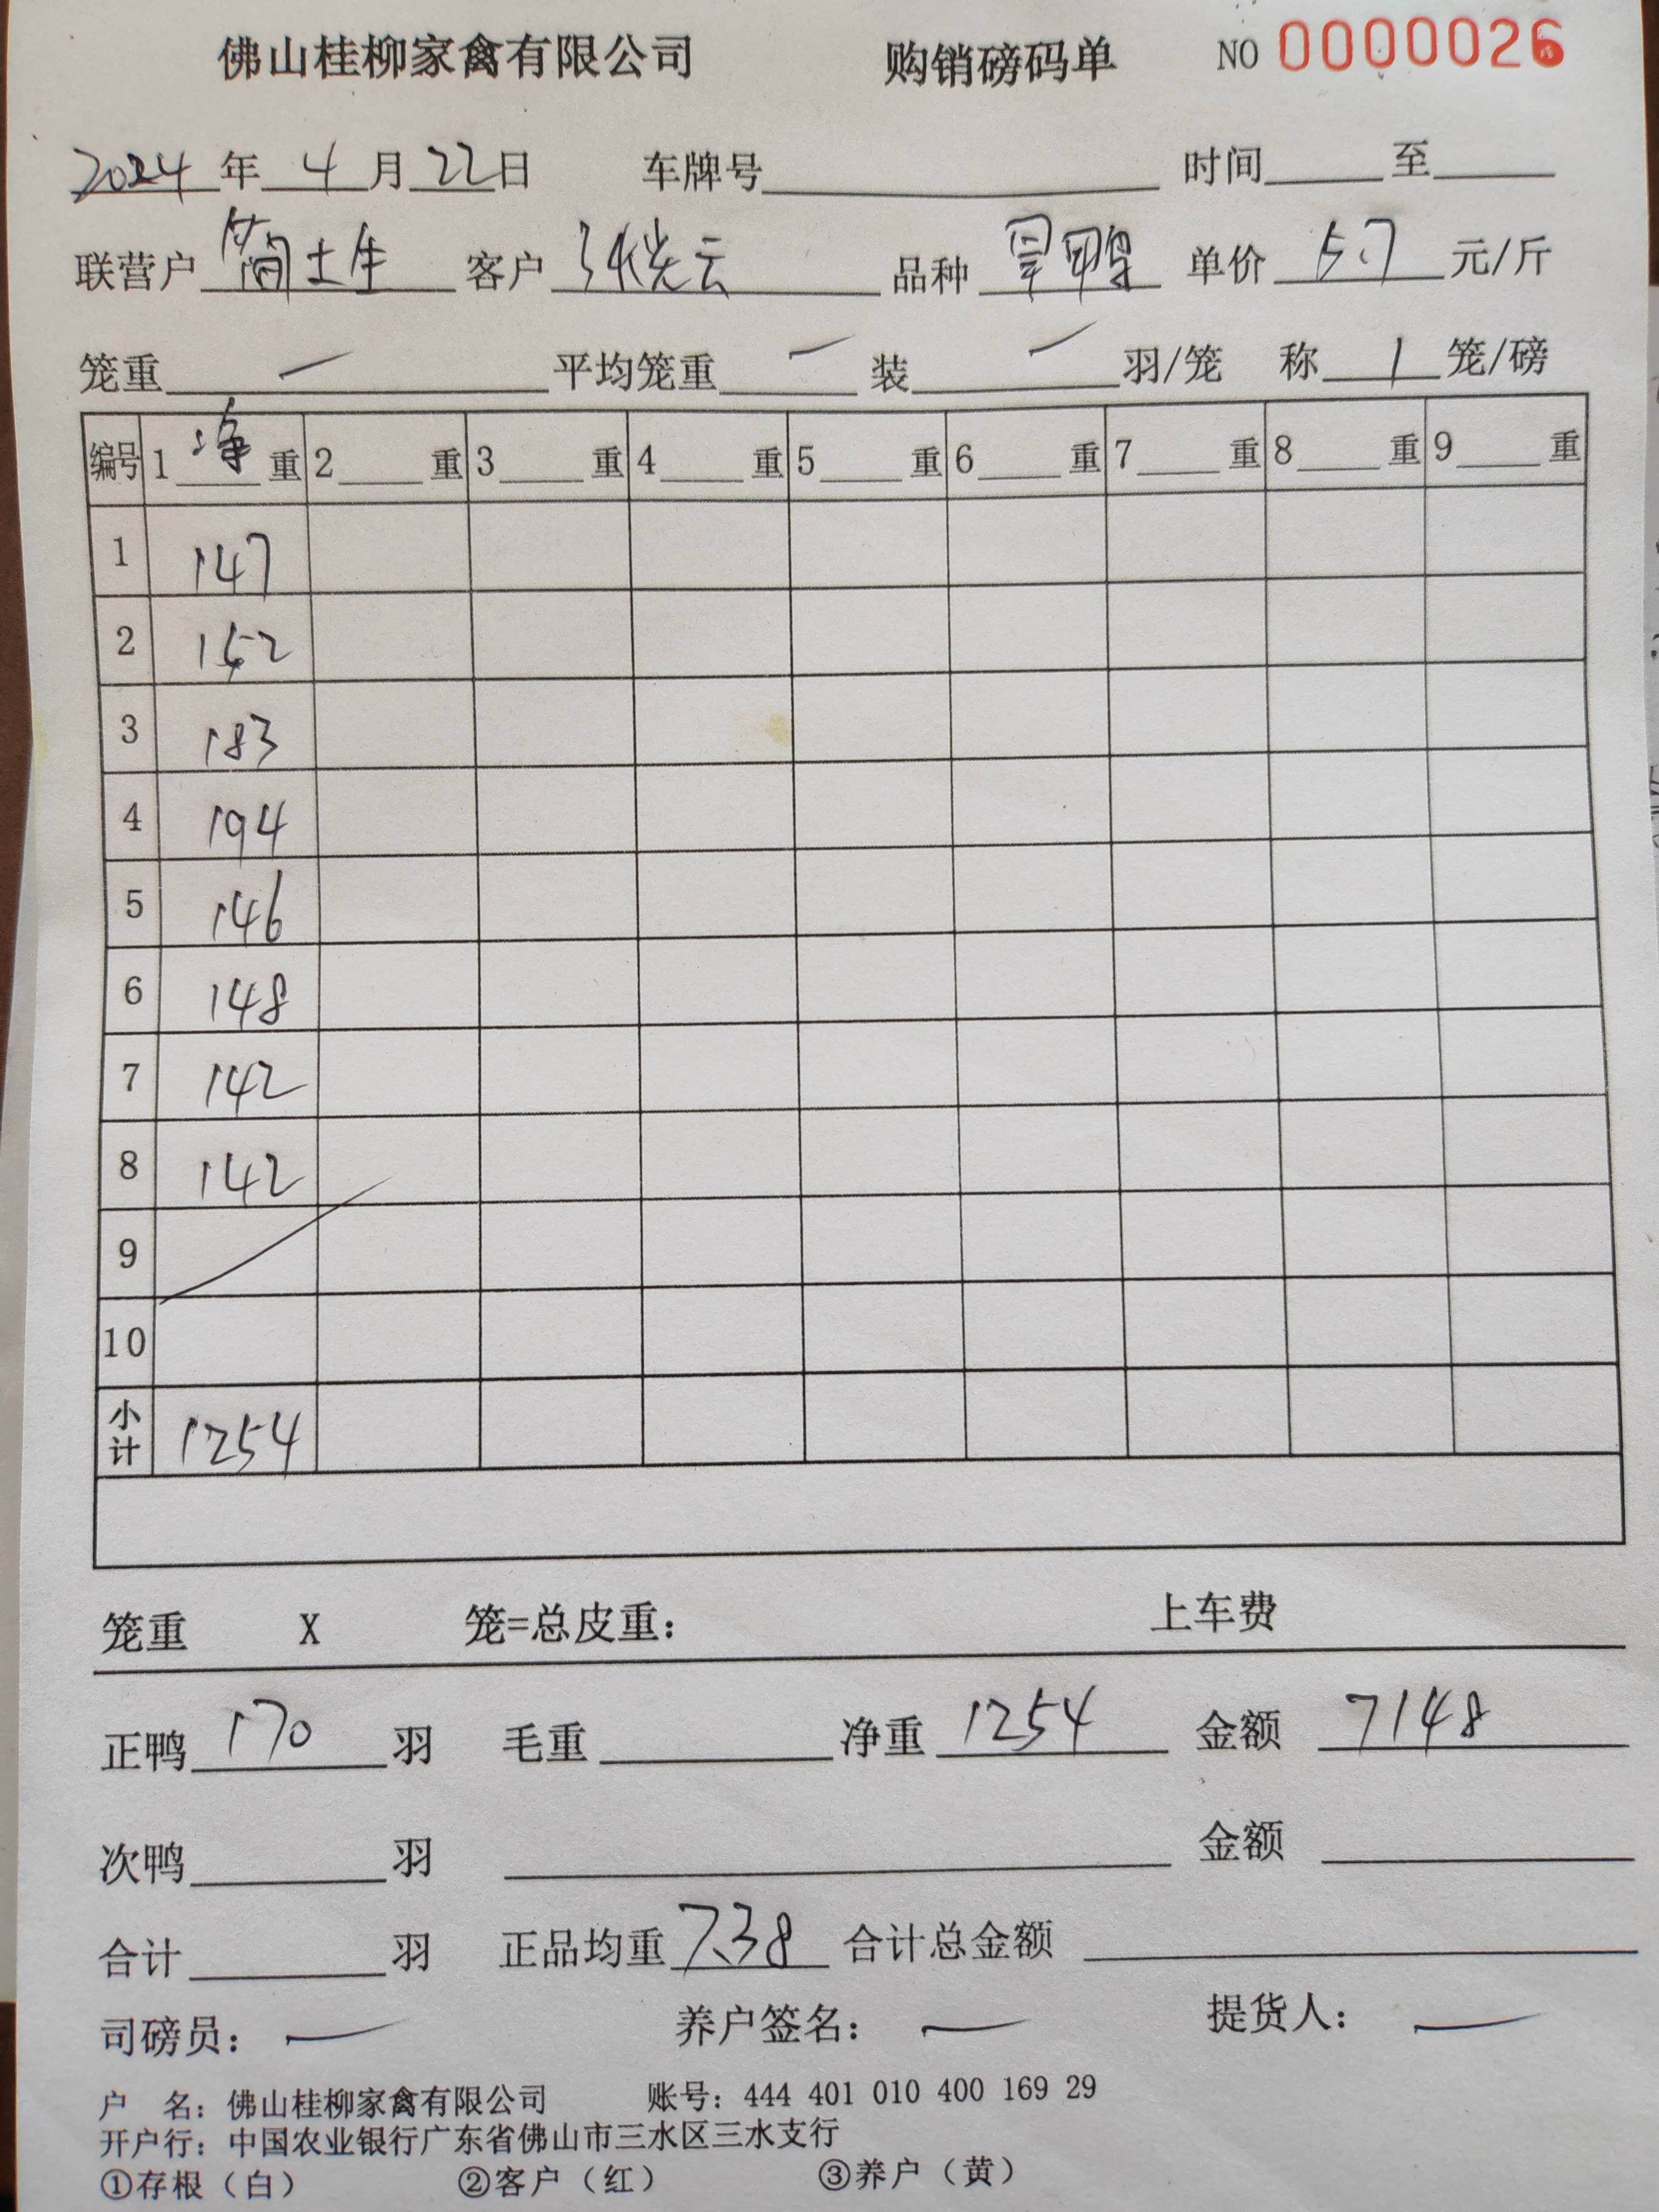 佛山桂柳家禽有限公司 购销磅码单 NO 0000026
2024年 4 月 22日 车牌号 时间 至
联营户 简土生 客户 张光云 品种 旱鸭 单价 5.7 元/斤
笼重 一 平均笼重 一 装 一 羽/笼 称 1 笼/磅
编号 1 净 重 2 重 3 重 4 重 5 重 6 重 7 重 8 重 9 重
1 147
2 152
3 183
4 194
5 146
6 148
7 142
8 142
9
10
小计 1254
笼重 X 笼=总皮重: 上车费
正鸭 170 羽 毛重 净重 1254 金额 7148
次鸭 羽 金额
合计 羽 正品均重 7.38 合计总金额
司磅员: 一 养户签名: 一 提货人: 一
户 名: 佛山桂柳家禽有限公司 账号: 444 401 010 400 169 29
开户行: 中国农业银行广东省佛山市三水区三水支行
①存根（白） ②客户（红） ③养户（黄）